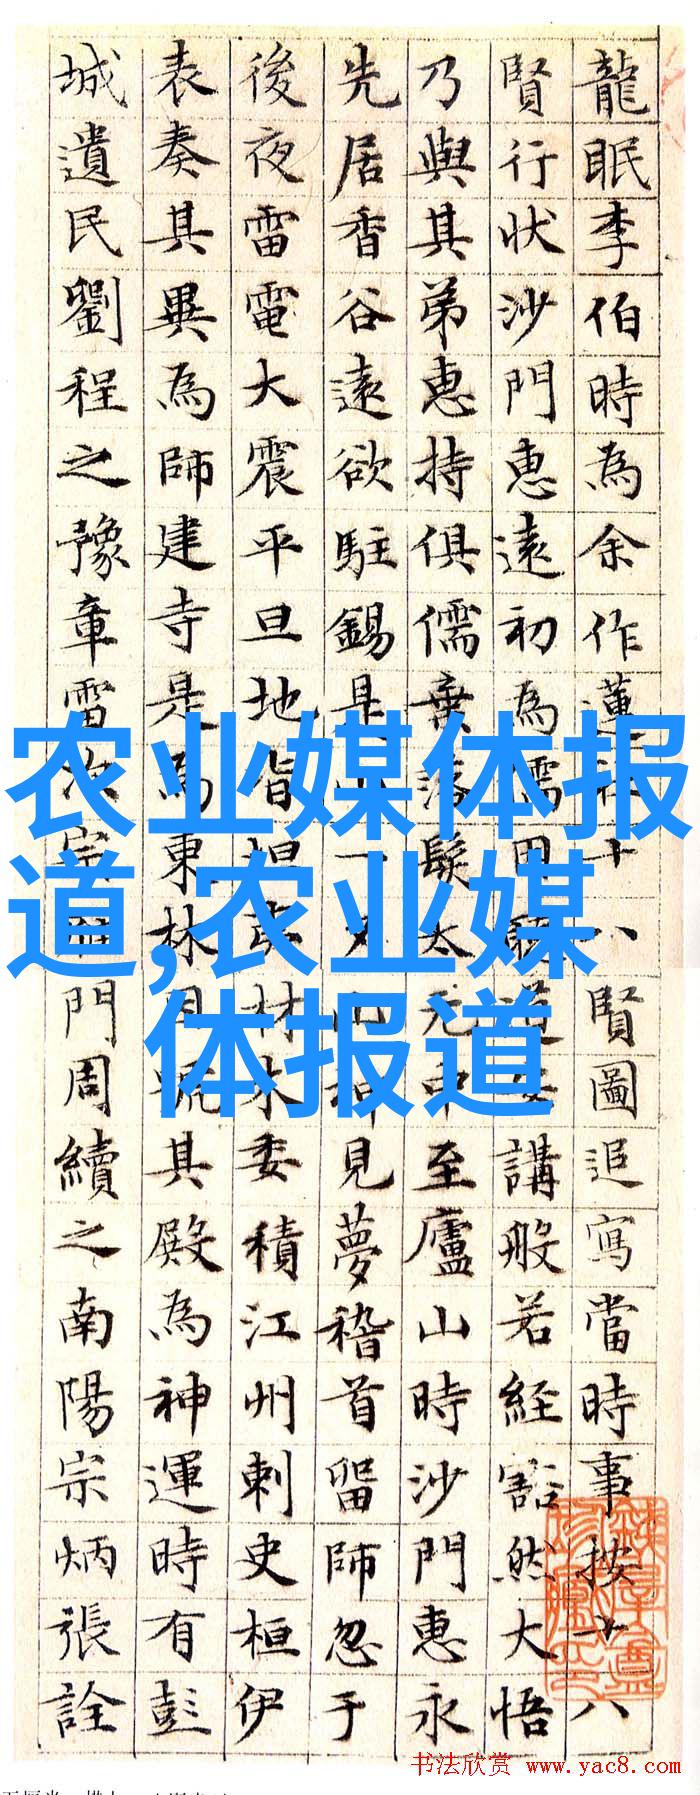 龍眠李伯時為余作蓮社十八賢圖追寫當時事按十八
賢行狀沙門惠遠初為儒
講般若經豁然大悟
乃與其弟惠持俱儒棄落髮太元中至廬山時沙門惠永
先居香谷遠欲駐錫是
見夢稽首留師忽于
後夜雷電大震平旦地皆坦
林木委積江州刺史桓伊
表奏其異為師建寺是為東林
其殿為神運時有彭
城遺民劉程之豫章雷次宗
門周續之南陽宗炳張詮
农业媒体报
道,农业媒
体报道
书法欣赏 www.yac8.com